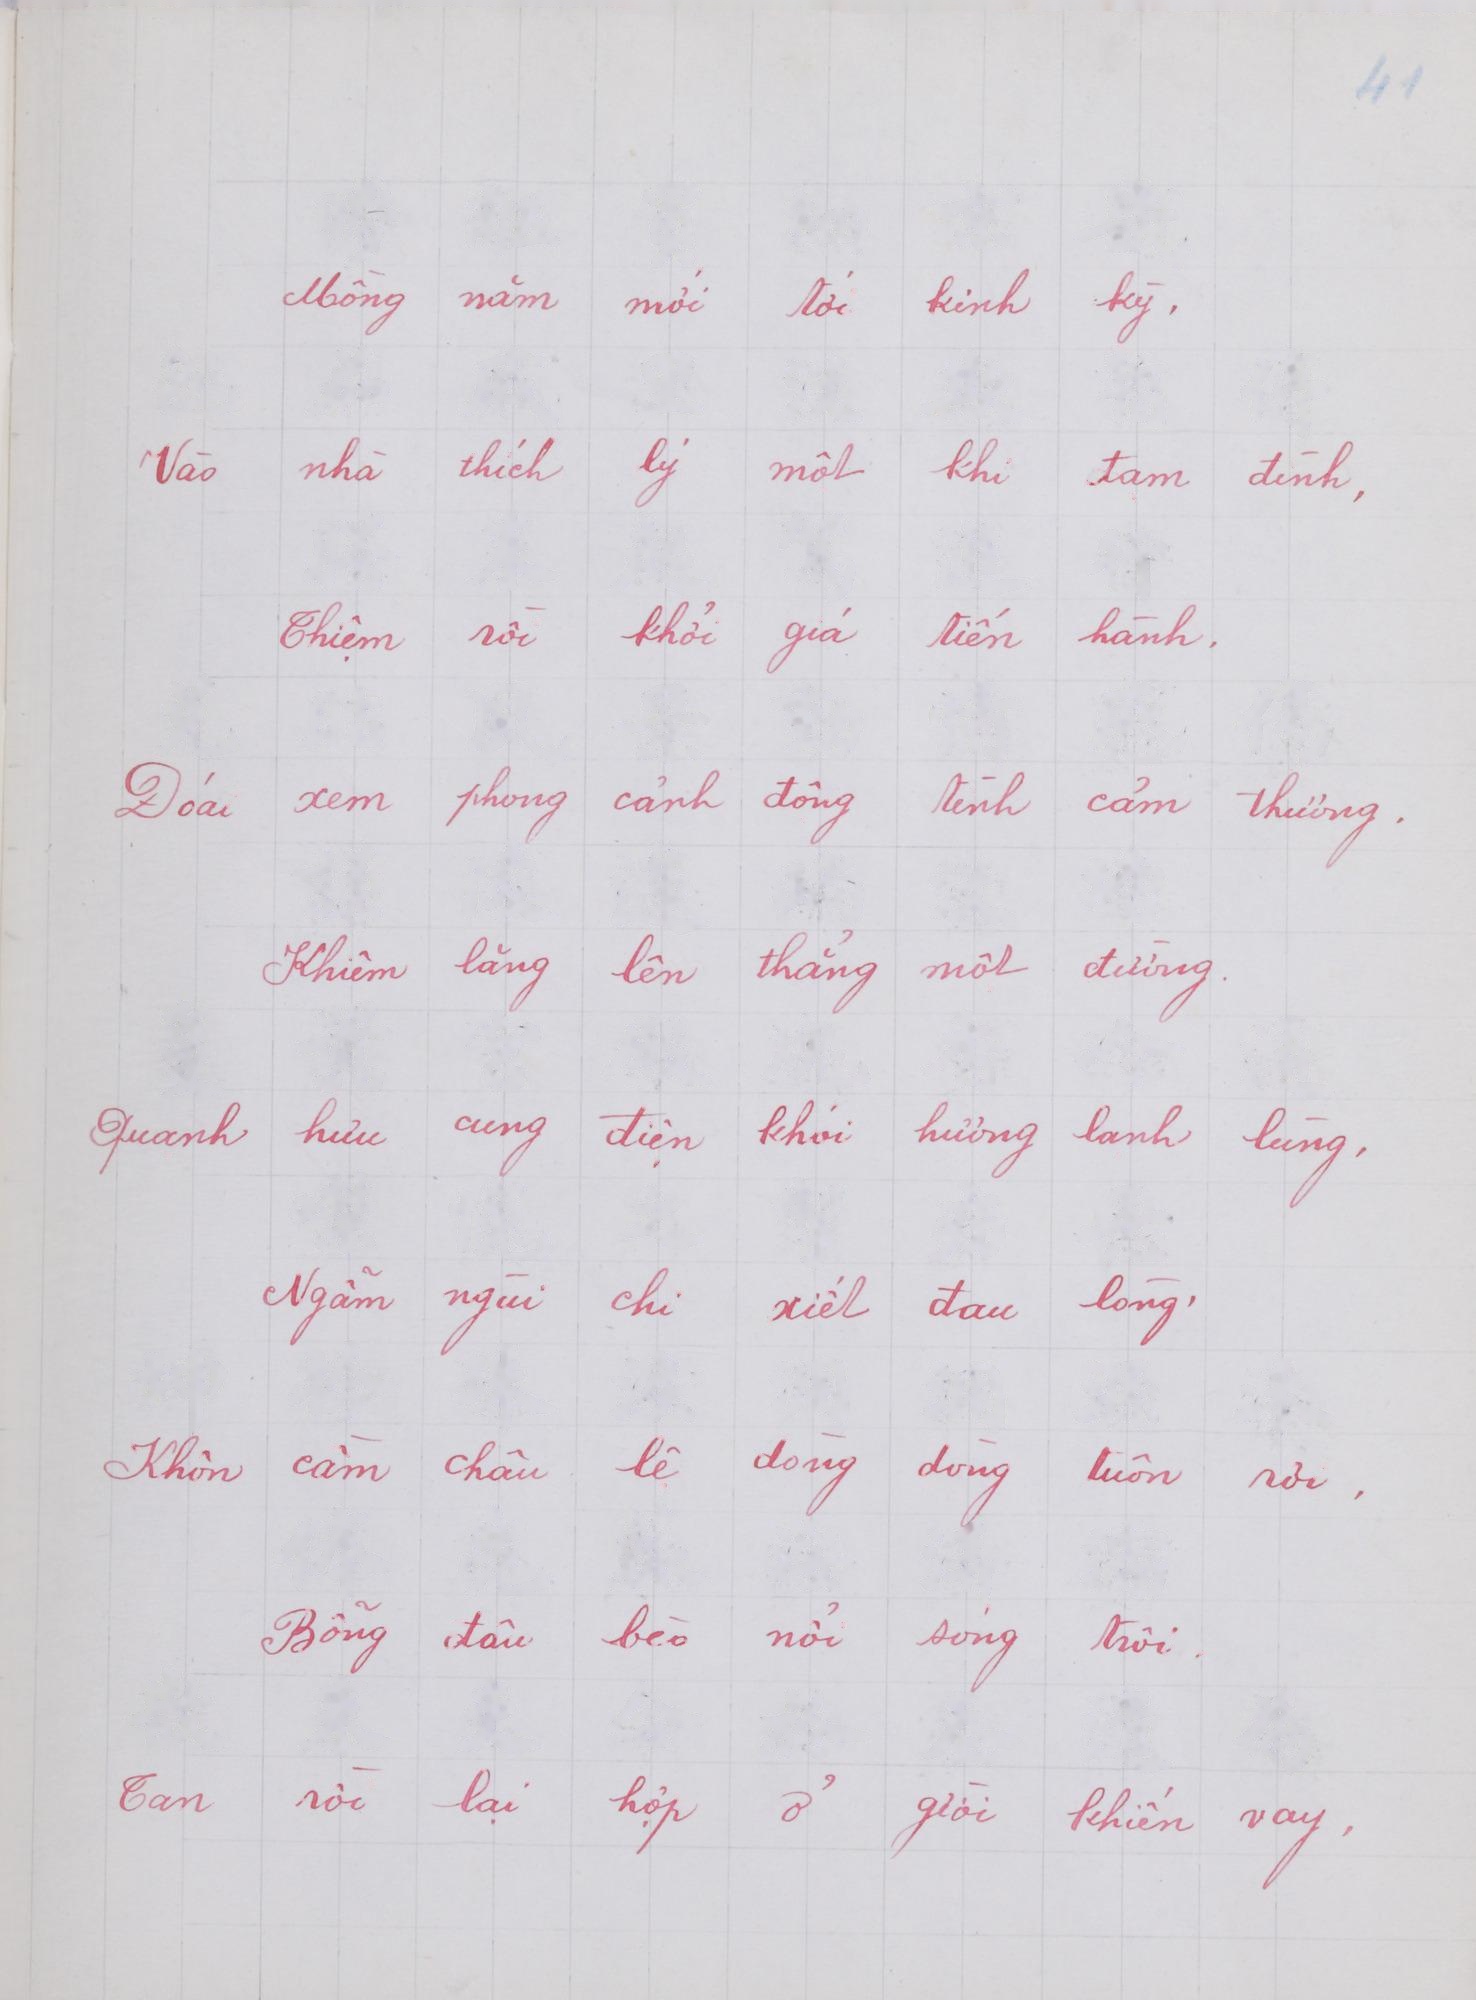 41
Mồng năm mới tới kinh kỳ,
Vào nhà thích lý một khi tam đình,
Thiệm rồi khởi giá tiến hành.
Đóai xem phong cảnh động tình cảm thương.
Khiêm lăng lên thẳng một đường.
Quanh hưu cung điện khói hương lanh lùng,
Ngẫm ngùi chi xiết đau lòng,
Khôn cầm châu lệ dòng dòng tuôn rơi,
Bỗng đâu bèo nổi sóng trôi.
Tan rồi lại hợp ở giời khiến vay,